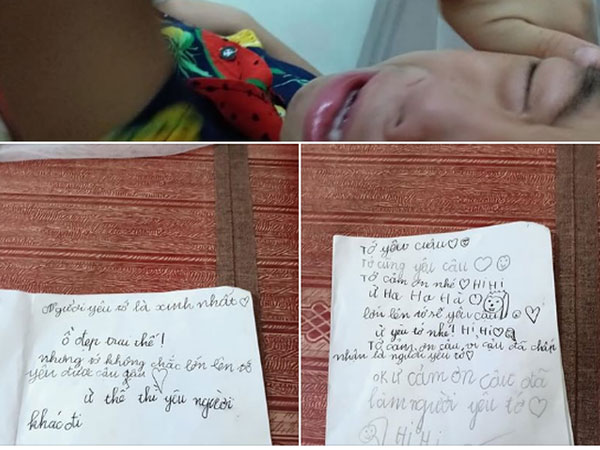 Người yêu tớ là xinh nhất
ồ đẹp trai thế!
nhưng tớ không chắc lớn lên tớ
yêu được cậu đâu
ừ thế thì yêu người
khác đi
Tớ yêu cậu
Tớ cũng yêu cậu
Tớ cảm ơn nhé Hi Hi
ừ Ha Ha Ha
lớn lên tớ sẽ yêu cậu
ừ yêu tớ nhé! Hi Hi
Tớ cảm ơn cậu vì cậu đã chấp
nhận là người yêu tớ
ok ừ cảm ơn cậu đã
làm người yêu tớ
Hi Hi